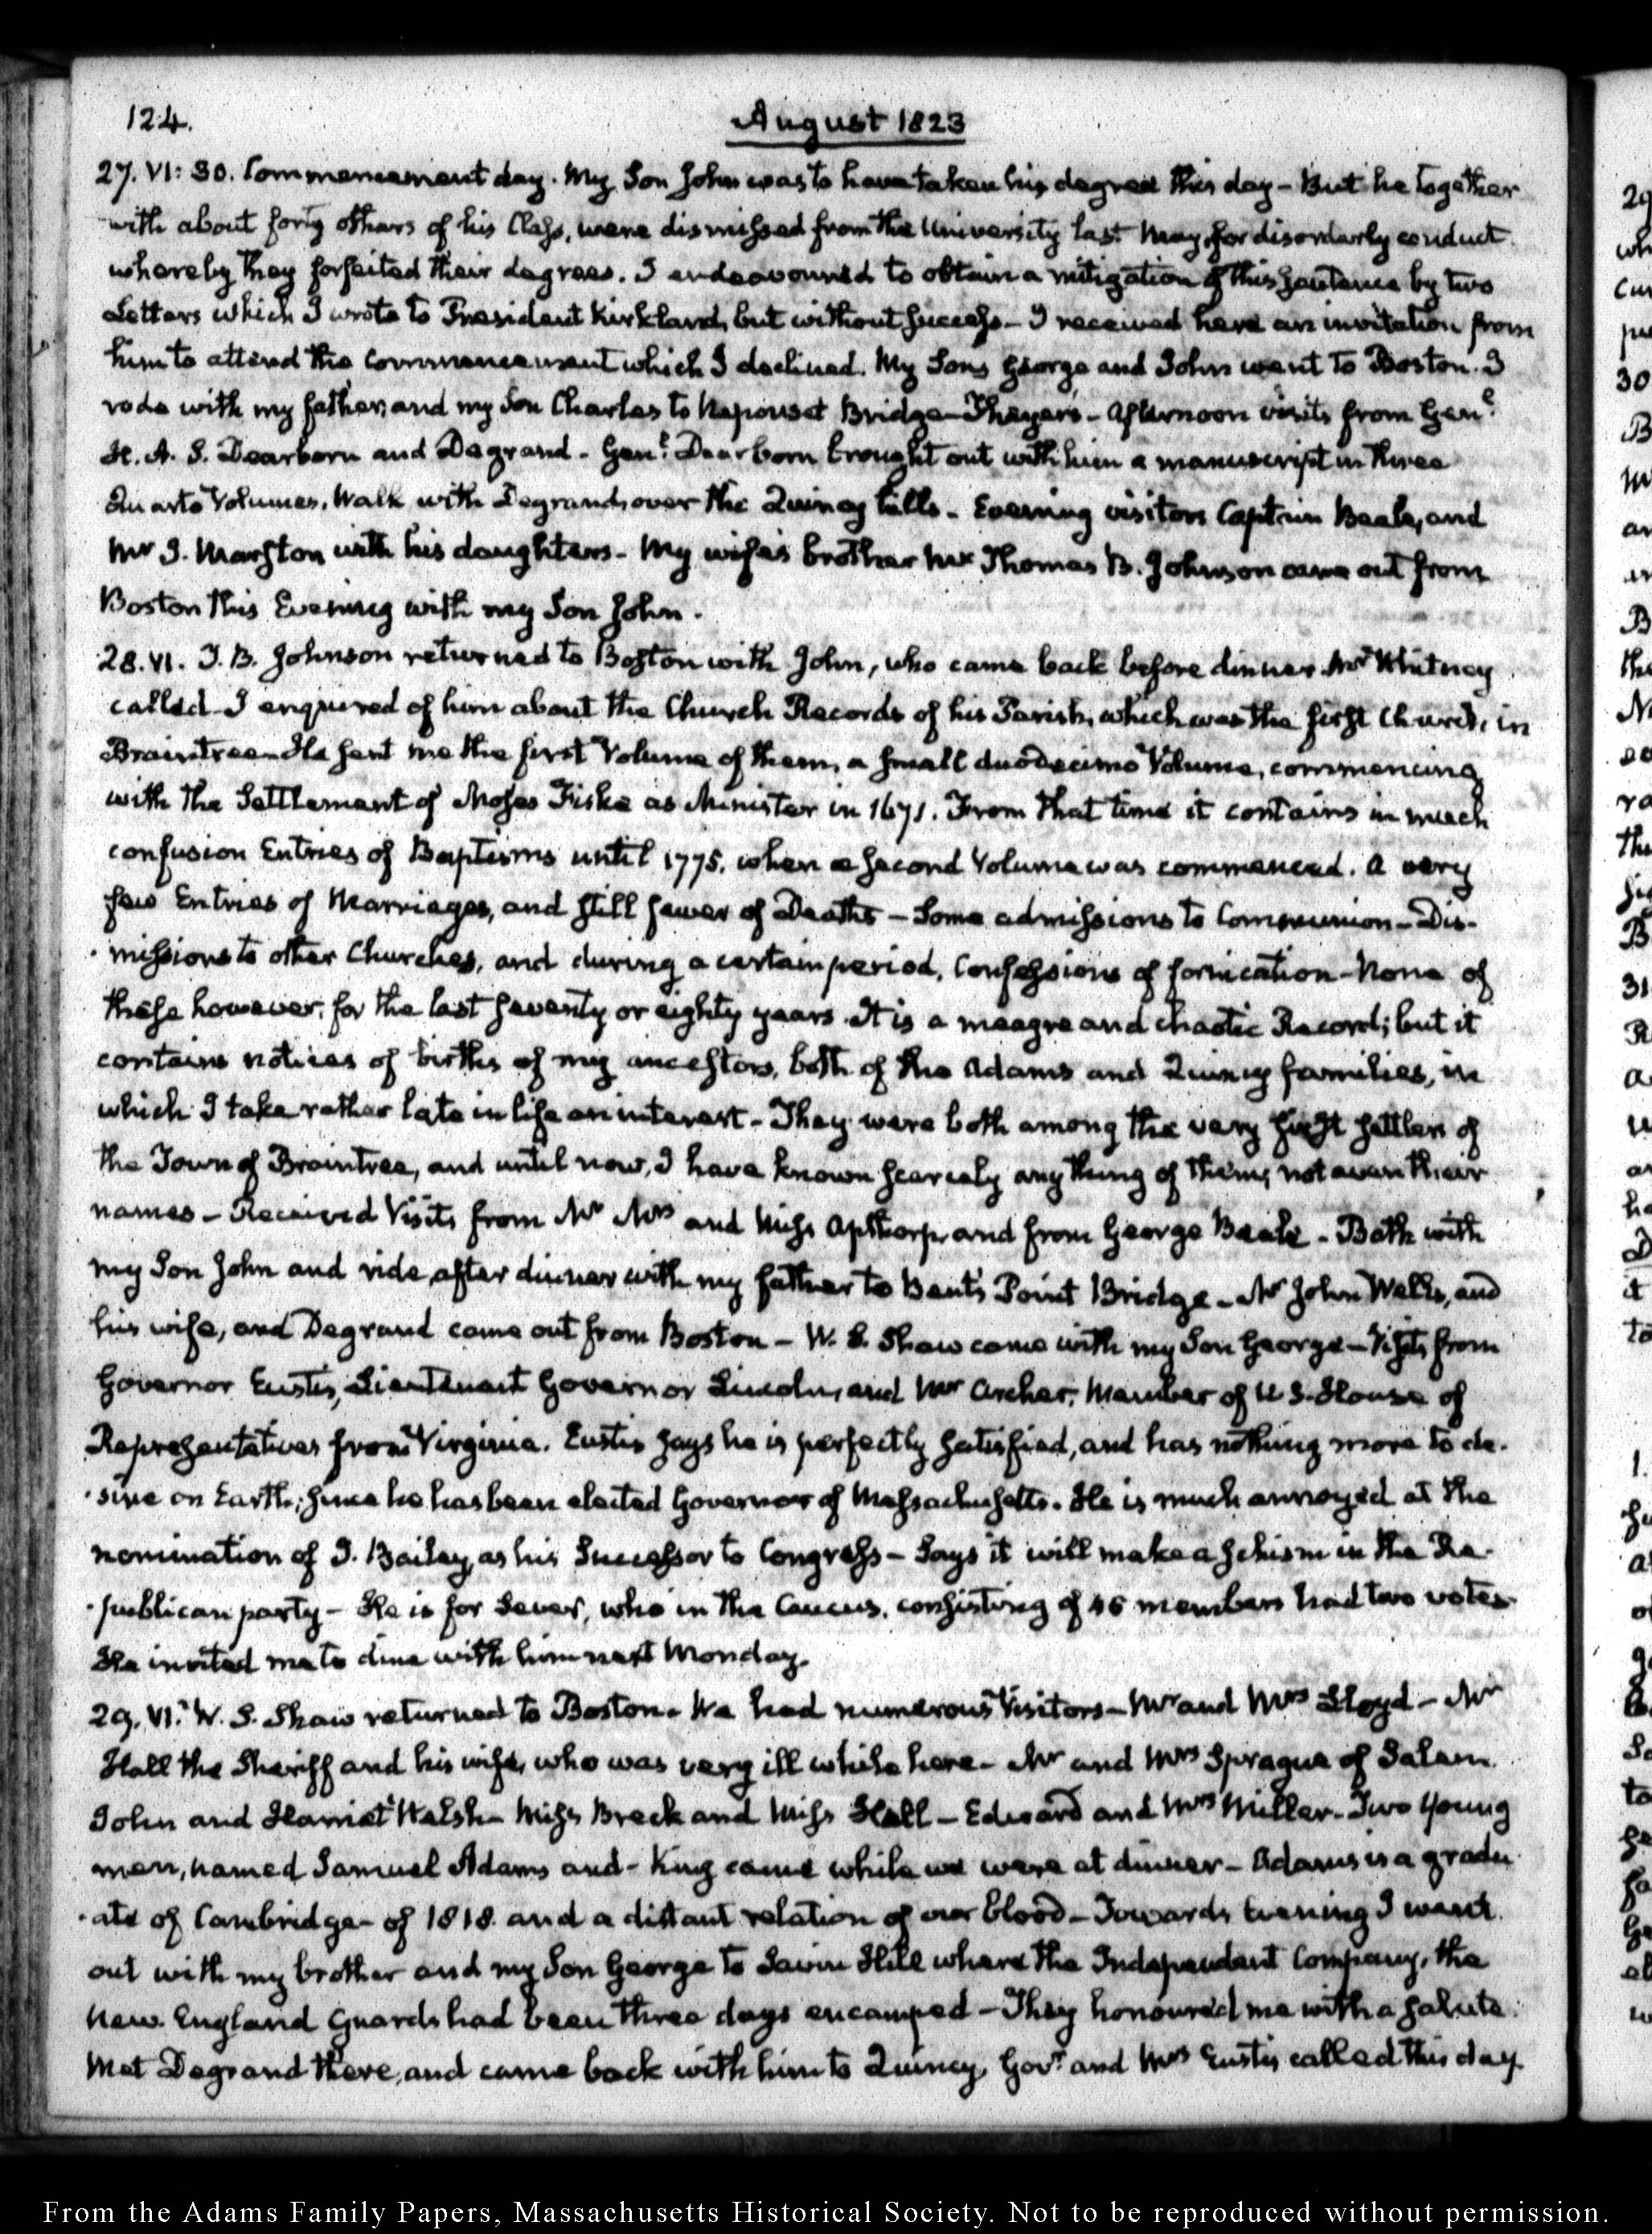 124.
August 1823
27. VI: 30. Commencement day. My Son John was to have taken his degree this day – But he together
with about forty others of his Class, were dismissed from the University last May, for disorderly conduct.
whereby they forfeited their degrees. I endeavoured to obtain a mitigation of this Sentence by two
Letters which I wrote to President Kirkland, but without success – I received here an invitation from
him to attend the Commencement which I declined. My Sons George and John went to Boston. I
rode with my father, and my Son Charles to Neponset Bridge – Thayer's – Afternoon visits from Genl.
H. A. S. Dearborn and Degrand – Genl. Dearborn brought out with him a manuscript in three
Quarto Volumes. Walk with Degrand, over the Quincy hills – Evening visitors Captain Beale, and
Mr J. Marston with his daughters – My wife's brother Mr Thomas B. Johnson came out from
Boston this Evening with my Son John.
28. VI. T. B. Johnson returned to Boston with John, who came back before dinner. Mr Whitney
called. I enquired of him about the Church Records of his Parish, which was the first Church, in
Braintree – He sent me the first Volume of them, a small duodecimo Volume, commencing
with the Settlement of Moses Fiske as Minister in 1671. From that time it contains in much
confusion Entries of Baptisms until 1775. when a second Volume was commenced. A very
few Entries of Marriages, and still fewer of Deaths – Some admissions to Communion – Dis-
missions to other Churches, and during a certain period, Confessions of fornication – None of
these however, for the last seventy or eighty years. It is a meagre and chaotic Record; but it
contains notices of births of my ancestors, both of the Adams and Quincy families, in
which I take rather late in life an interest – They were both among the very first settlers of
the Town of Braintree, and until now, I have known scarcely any thing of them, not even their
names – Received Visits from Mr Mrs and Miss Apthorp, and from George Beale – Bath with
my Son John and ride after dinner with my father to Bent's Point Bridge – Mr John Welles, and
his wife, and Degrand came out from Boston – W. S. Shaw came with my Son George – Visits from
Governor Eustis, Lieutenant Governor Lincoln, and Mr Archer, Member of U S. House of
Representatives from Virginia. Eustis says he is perfectly satisfied, and has nothing more to de-
sire on Earth, since he has been elected Governor of Massachusetts. He is much annoyed at the
nomination of J. Bailey, as his Successor to Congress – Says it will make a schism in the Re-
publican party – He is for Sever, who in the Caucus, consisting of 46 members had two votes.
He invited me to dine with him next Monday.
29. VI. W. S. Shaw returned to Boston. We had numerous Visitors – Mr and Mrs Lloyd – Mr
Hall the Sheriff and his wife, who was very ill while here – Mr and Mrs Sprague of Salem.
John and Harriet Welsh – Miss Breck and Miss Hall – Edward and Mrs Miller – Two young
men, named Samuel Adams and – King came while we were at dinner – Adams is a gradu-
ate of Cambridge – of 1818. and a distant relation of our blood – Towards Evening I went
out with my brother and my Son George to Savin Hill where the Independent Company, the
New England Guards had been three days encamped – They honoured me with a salute.
Met Degrand there, and came back with him to Quincy, Govr. and Mrs Eustis called this day
From the Adams Family Papers, Massachusetts Historical Society. Not to be reproduced without permission.